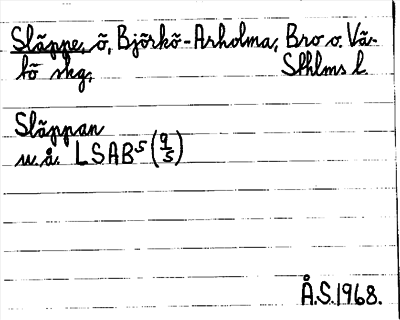 Släppe, ö, Björkö-Arholma, Bro o. Vä-
tö skg, Sthlms l.
Släppan
u. å. LSAB⁵ (9/5)
Å.S. 1968.